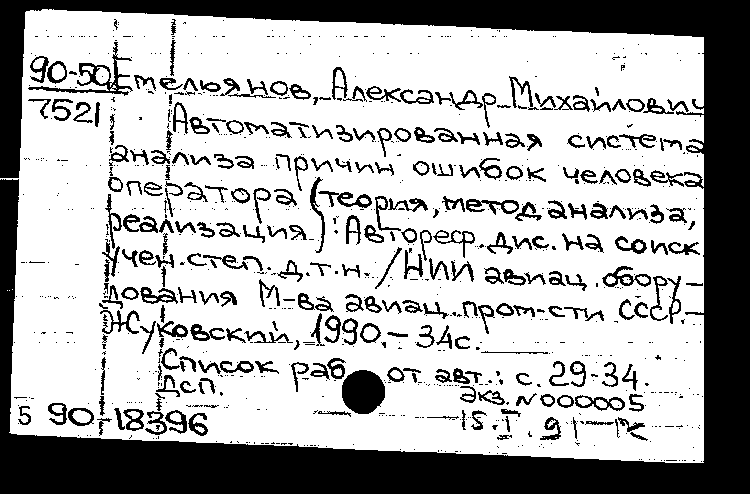 90-50 Емельянов, Александр Михайлович
7521 Автоматизированная система
анализа причин ошибок человека
оператора (теория, метод анализа,
реализация) : Автореф. дис. на соиск.
учен. степ. д.т.н. / НИИ авиац. обору-
дования М-ва авиац. пром-сти СССР.-
Жуковский, 1990.- 34с.
Список работ авт.: с. 29-34.
ДСП. Экз. N000005
5 90-18396 15.I.91